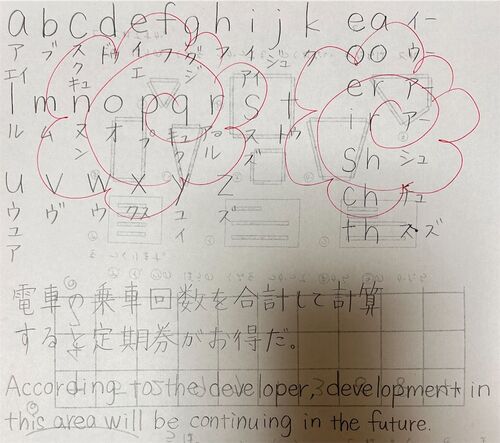 a b c d e f g h i j k ea イー
ア ブ ス ドゥ イ フ グ フ イ ジュ ク oo ウー
エイ ク エ ジ アイ er アー
キュ
l m n o p q r s t ir アー
ル ム ヌ オ プ キュ ル ス ゥ sh シュ
ン ク ズ
u v w x y z ch チュ
ウ ヴ ウ クス ユ ズ th スズ
ユ イ
ア
電車の乗車回数を合計して計算
すると定期券がお得だ。
According to the developer, development in
this area will be continuing in the future.